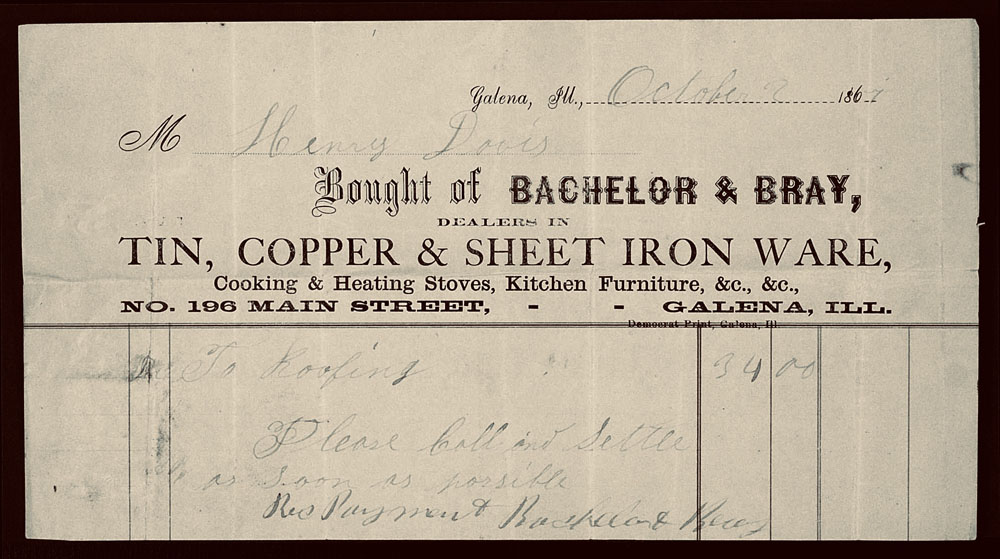 Galena, Ill., October 2 1867
M Henry Davis
Bought of BACHELOR & BRAY,
DEALERS IN
TIN, COPPER & SHEET IRON WARE,
Cooking & Heating Stoves, Kitchen Furniture, &c., &c.,
NO. 196 MAIN STREET, - - GALENA, ILL.
Democrat Print, Galena, Ill.
To Roofing 34 00
Please Call and Settle
as soon as possible
Bachelor & Bray